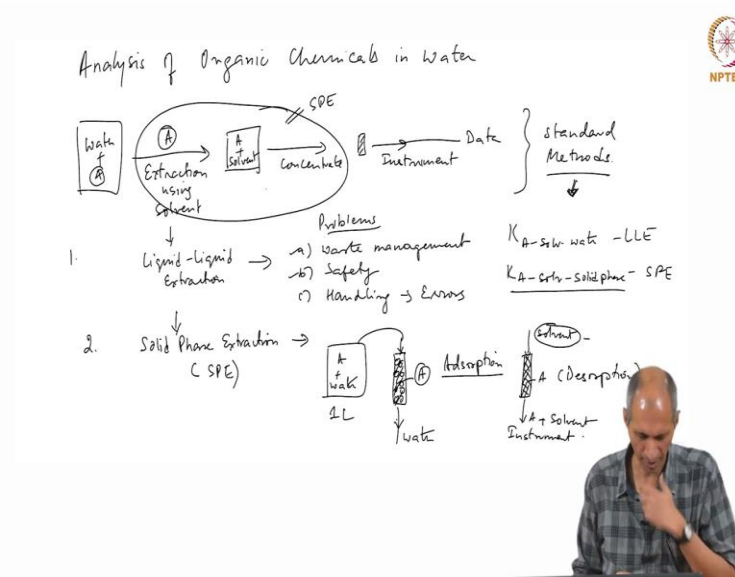 Analysis of Organic Chemicals in Water
NPTE
SPE
Water + A
A
Extraction using Solvent
A + Solvent
Concentrate
Instrument
Data
Standard Methods.
1. Liquid-Liquid Extraction
Problems
a) Waste management
b) Safety
c) Handling → Errors
K A-Solv-water - LLE
K A-Solv-Solid phase - SPE
2. Solid Phase Extraction (SPE)
A + water
1L
A
water
Adsorption
Solvent
A (Desorption)
A + Solvent
Instrument.